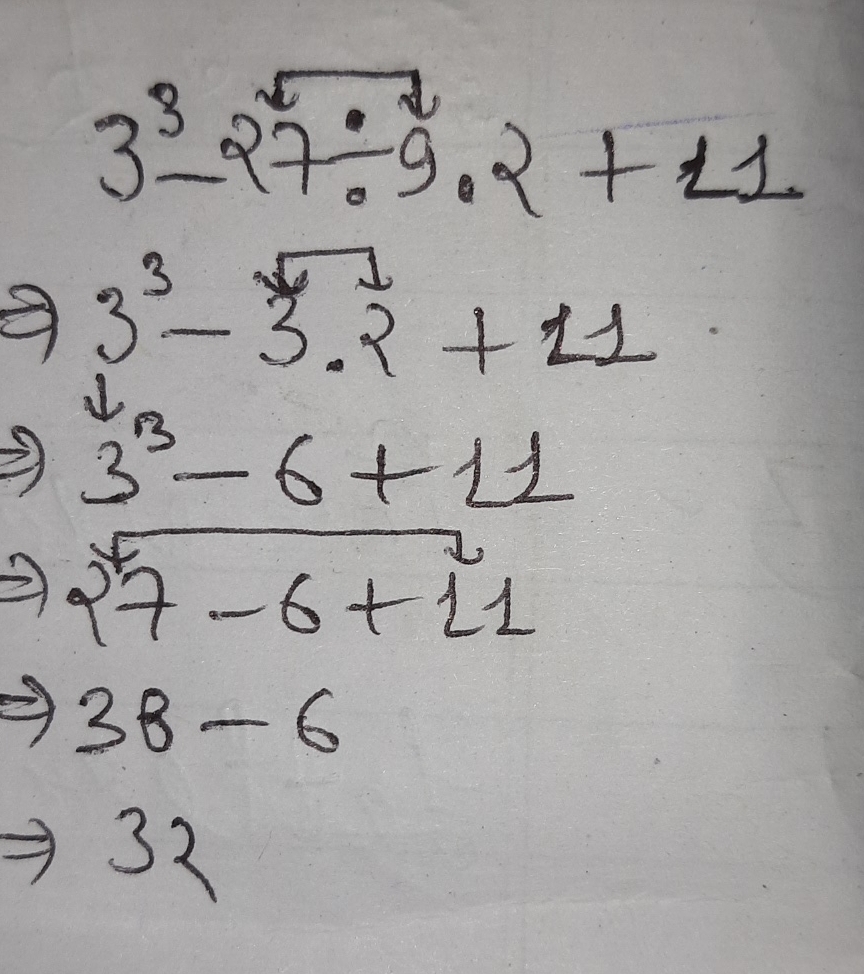 3³ - 27 ÷ 9 . 2 + 11
⇒ 3³ - 3 . 2 + 11
⇒ 3³ - 6 + 11
⇒ 27 - 6 + 11
⇒ 38 - 6
⇒ 32